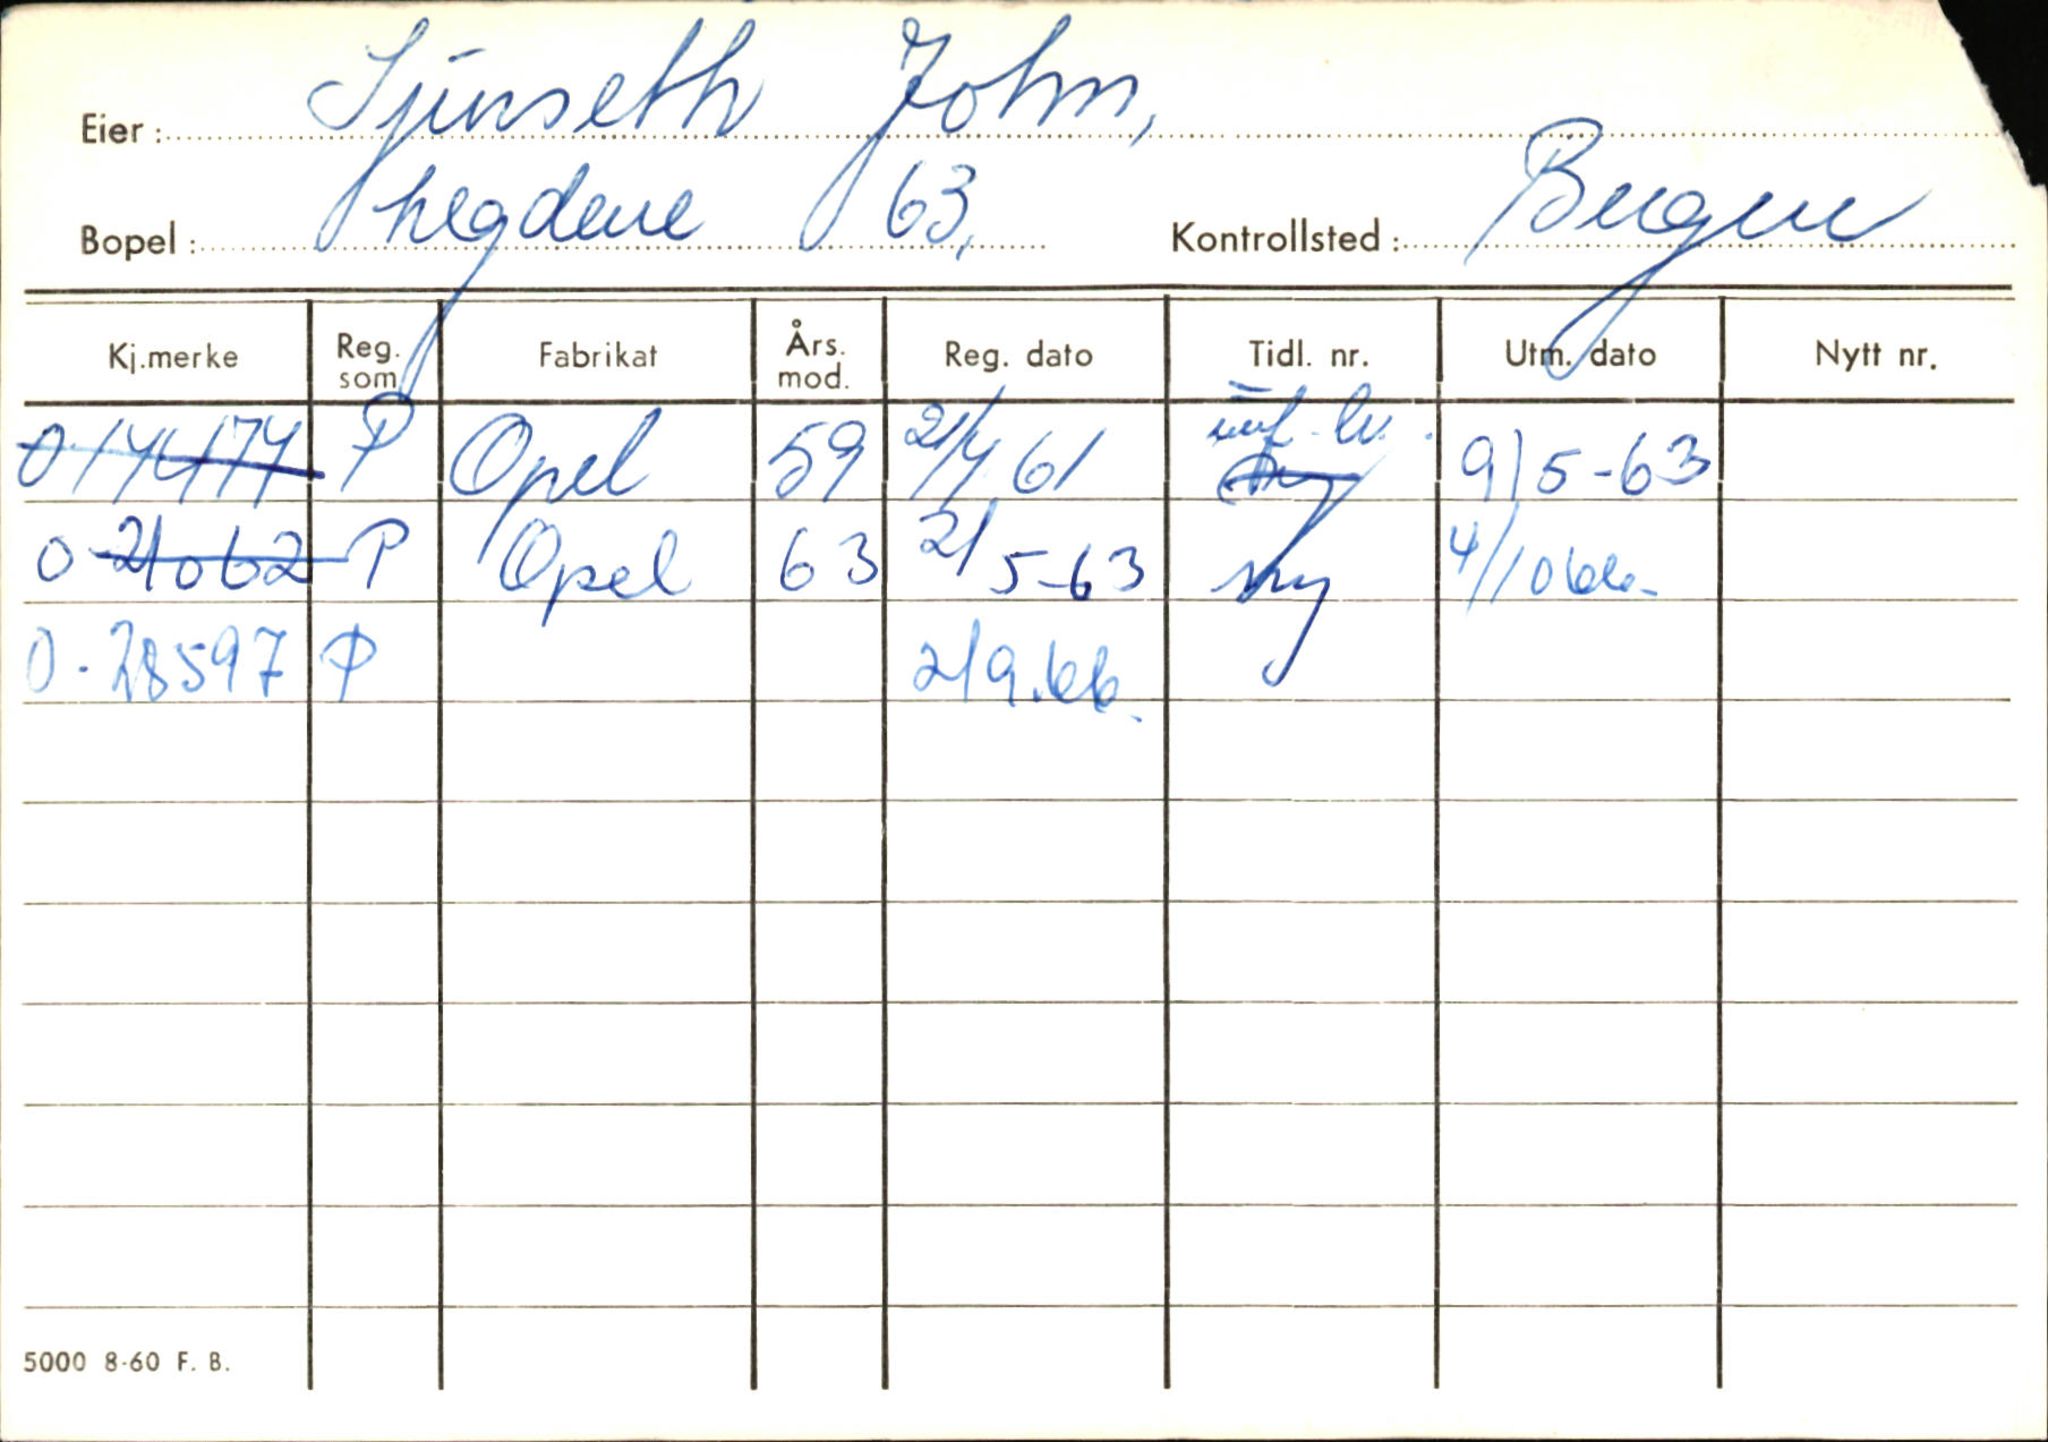 Eier: Sjurseth John,
Bopel: hegdene 63, Kontrollsted: Bergen
Kj.merke Reg. som Fabrikat Års. mod. Reg. dato Tidl. nr. Utm. dato Nytt nr.
0-14474 P Opel 59 21/4 61 9/5-63
0-21062 P Opel 63 21/5-63 ny 4/10 66-
0-28597 P 2/9.66.
5000 8-60 F. B.